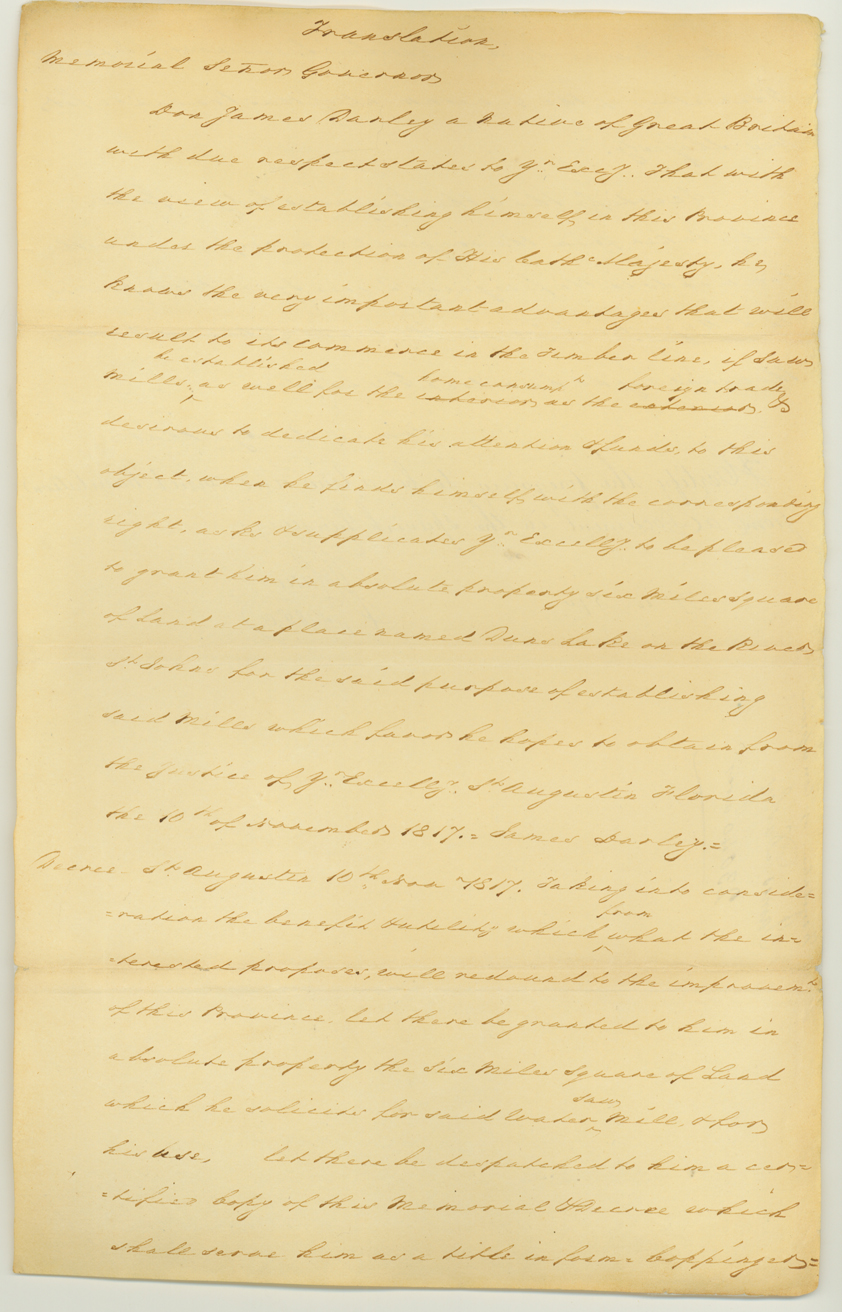 Translation,
Memorial Señor Governor
Don James Darley a Native of Great Britain
with due respect states to Yr. Excy. That with
the view of establishing himself in this Province
under the protection of His Cathc. Majesty, he
knows the very important advantages that will
result to its commerce in the Timber line, if Saw
be established
home consumpn foreign trade
Mills, as well for the interior as the exterior. &
desirous to dedicate his attention & funds, to this
object, when he finds himself with the corresponding
right, asks & supplicates Yr. Excelly. to be pleased
to grant him in absolute property six Miles square
of Land at a place named Duns Lake on the River
St. Johns for the said purpose of establishing
said Mills which favor he hopes to obtain from
the Justice of Yr. Excelly. St. Augustin Florida
the 10th of November 1817.= James Darley.=
Decree - St. Augustin 10th Novr 1817. Taking into conside=
=ration the benefit & utility which from what the in=
=terested proposes, will redound to the improvemts.
of this Province, let there be granted to him in
absolute property the Six Miles square of Land
which he solicits for said Water saw Mill, & for
his use, let there be despatched to him a cer=
=tified Copy of this Memorial & Decree which
shall serve him as a title in form= Coppinger=